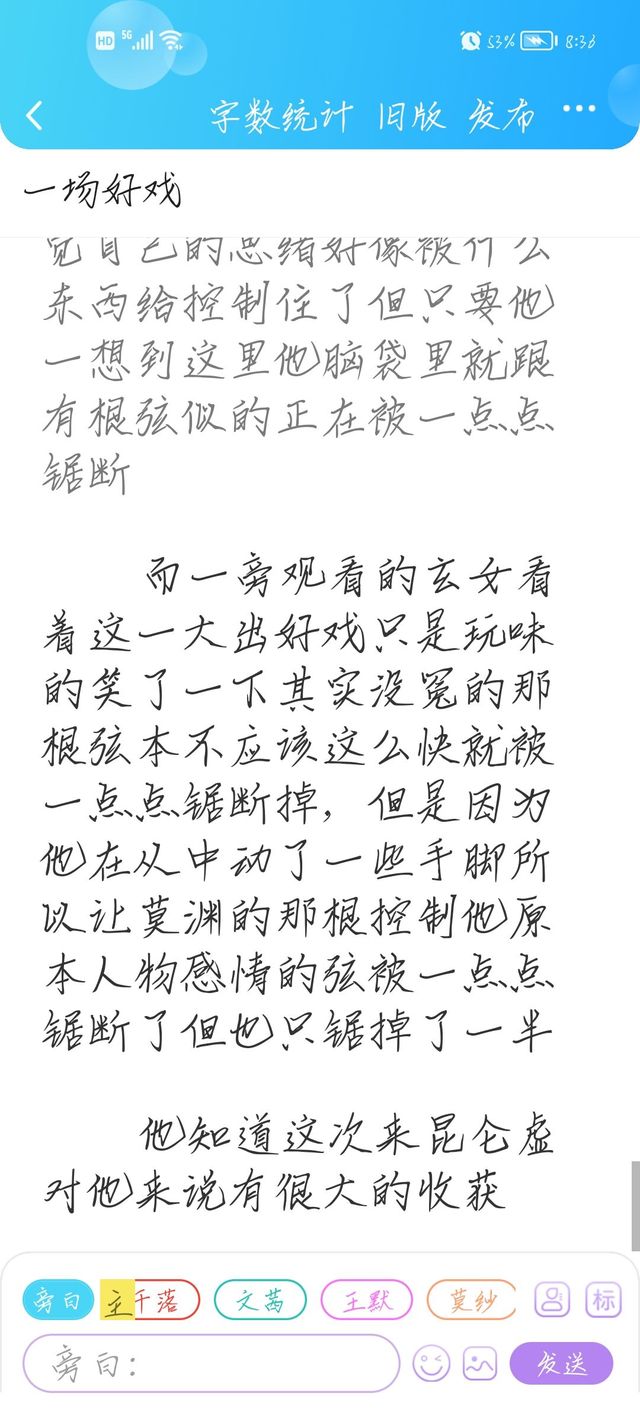 HD 5G 53% 8:36
字数统计 旧版 发布
一场好戏
觉自己的思绪好像被什么
东西给控制住了但只要他
一想到这里他脑袋里就跟
有根弦似的正在被一点点
锯断
而一旁观看的玄女看
着这一大出好戏只是玩味
的笑了一下其实没冤的那
根弦本不应该这么快就被
一点点锯断掉，但是因为
他在从中动了一些手脚所
以让莫渊的那根控制他原
本人物感情的弦被一点点
锯断了但也只锯掉了一半
他知道这次来昆仑虚
对他来说有很大的收获
旁白 主 千落 文茜 王默 莫纱 标
旁白： 发送